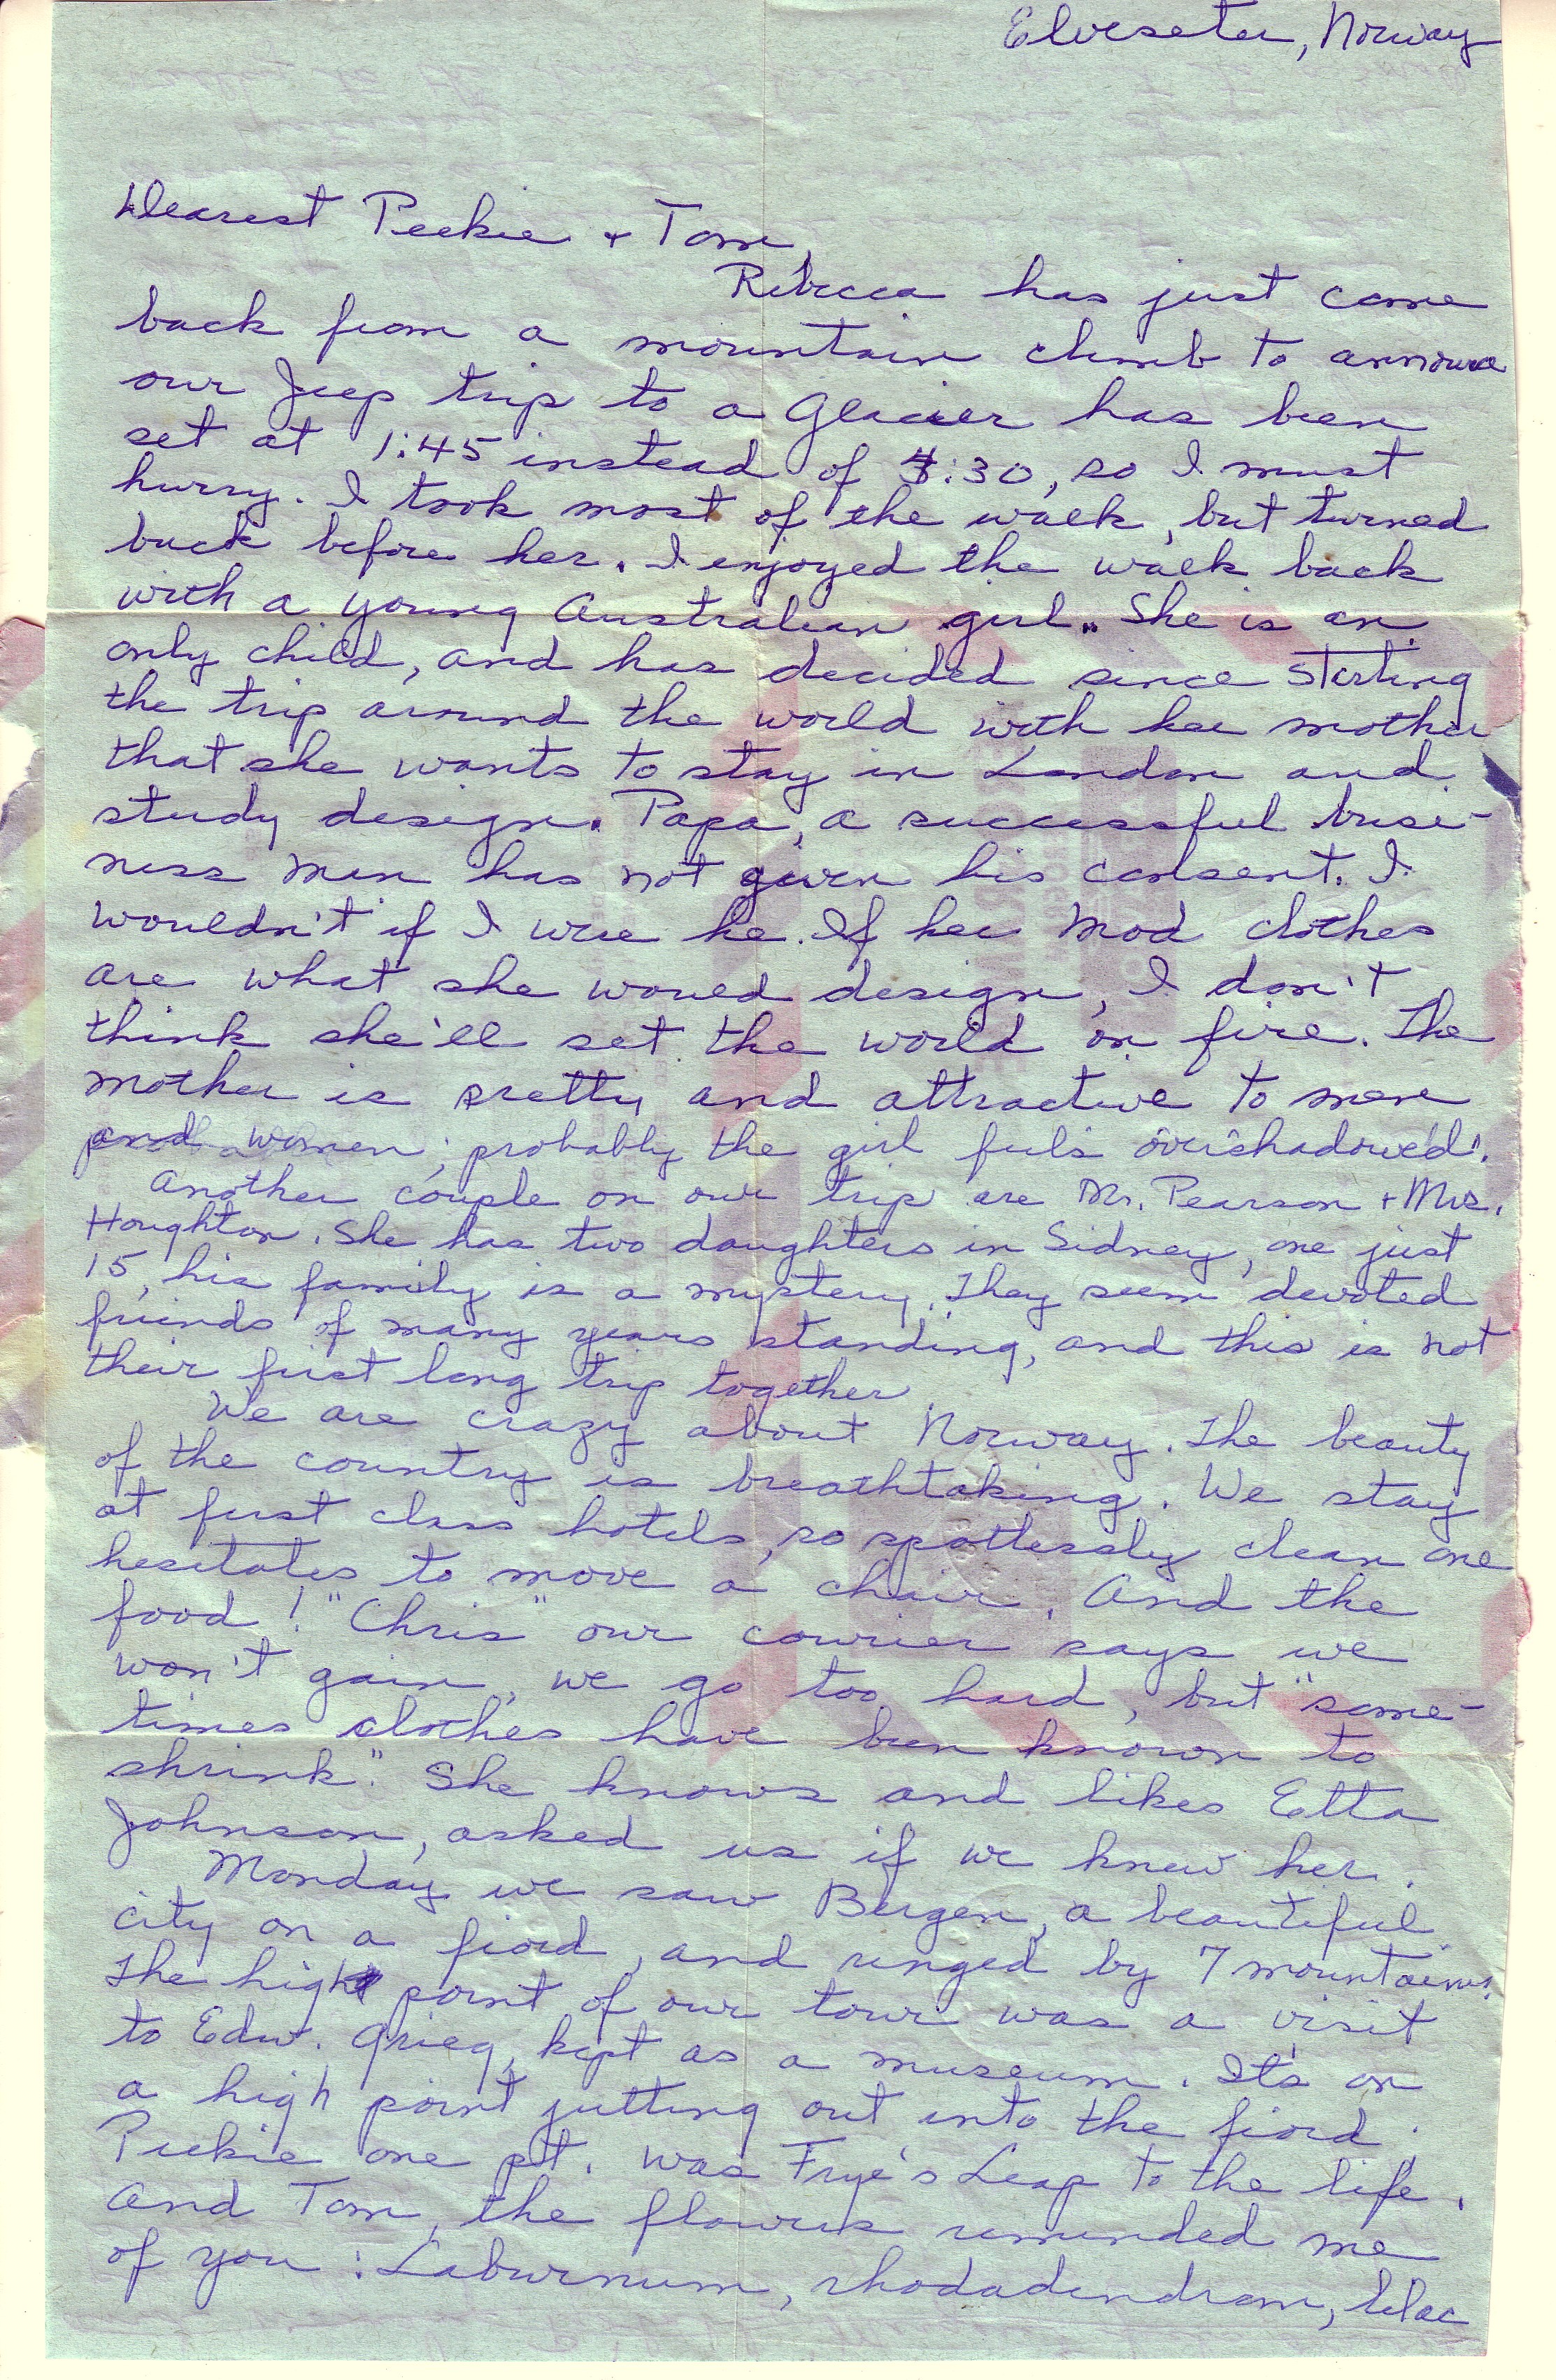 Elveseter, Norway
Dearest Peekie + Tom,
Rebecca has just come
back from a mountain climb to announce
our Jeep trip to a Glacier has been
set at 1:45 instead of :30, so I must
hurry. I took most of the walk, but turned
back before her. I enjoyed the walk back
with a young Australian girl. She is an
only child, and has decided since starting
the trip around the world with her mother
that she wants to stay in London and
study design. Papa, a successful busi-
ness man has not given his consent. I
wouldn't if I were he. If her Mod clothes
are what she would design, I don't
think she'll set the world on fire. The
mother is pretty and attractive to men
and women; probably the girl feels overshadowed.
Another couple on our trip are Mr. Pearson + Mrs.
Houghton. She has two daughters in Sidney, one just
15, his family is a mystery. They seem devoted
friends of many years standing, and this is not
their first long trip together.
We are crazy about Norway. The beauty
of the country is breathtaking. We stay
at first class hotels, so spotlessly clean one
hesitates to move a chair. And the
food! "Chris" our courier says we
won't gain, we go too hard, but "some-
times clothes have been known to
shrink." She knows and likes Etta
Johnson, asked us if we knew her.
Monday we saw Bergen, a beautiful
city on a fiord, and ringed by 7 mountains.
The high point of our tour was a visit
to Edw. Grieg, kept as a museum. It's on
a high point jutting out into the fiord.
Peekie one pt. was Frye's Leap to the life.
And Tom, the flowers reminded me
of you: Laburnum, rhodadendrom, lilac